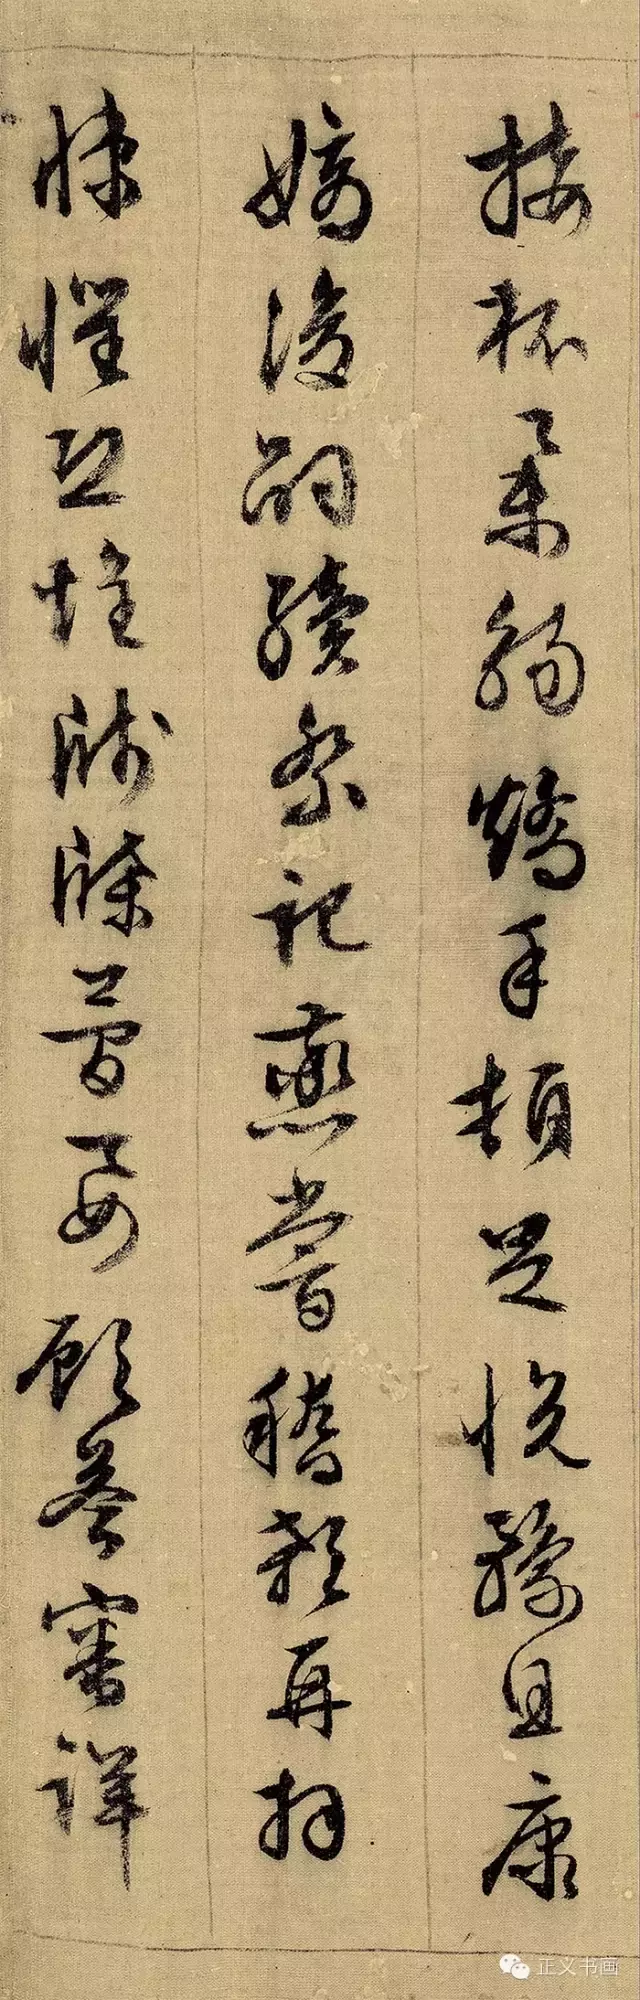 接杯舉觴矯手頓足悅豫且康
嫡後嗣續祭祀蒸嘗稽顙再拜
悚懼恐惶牋牒簡要顧答審詳
正义书画